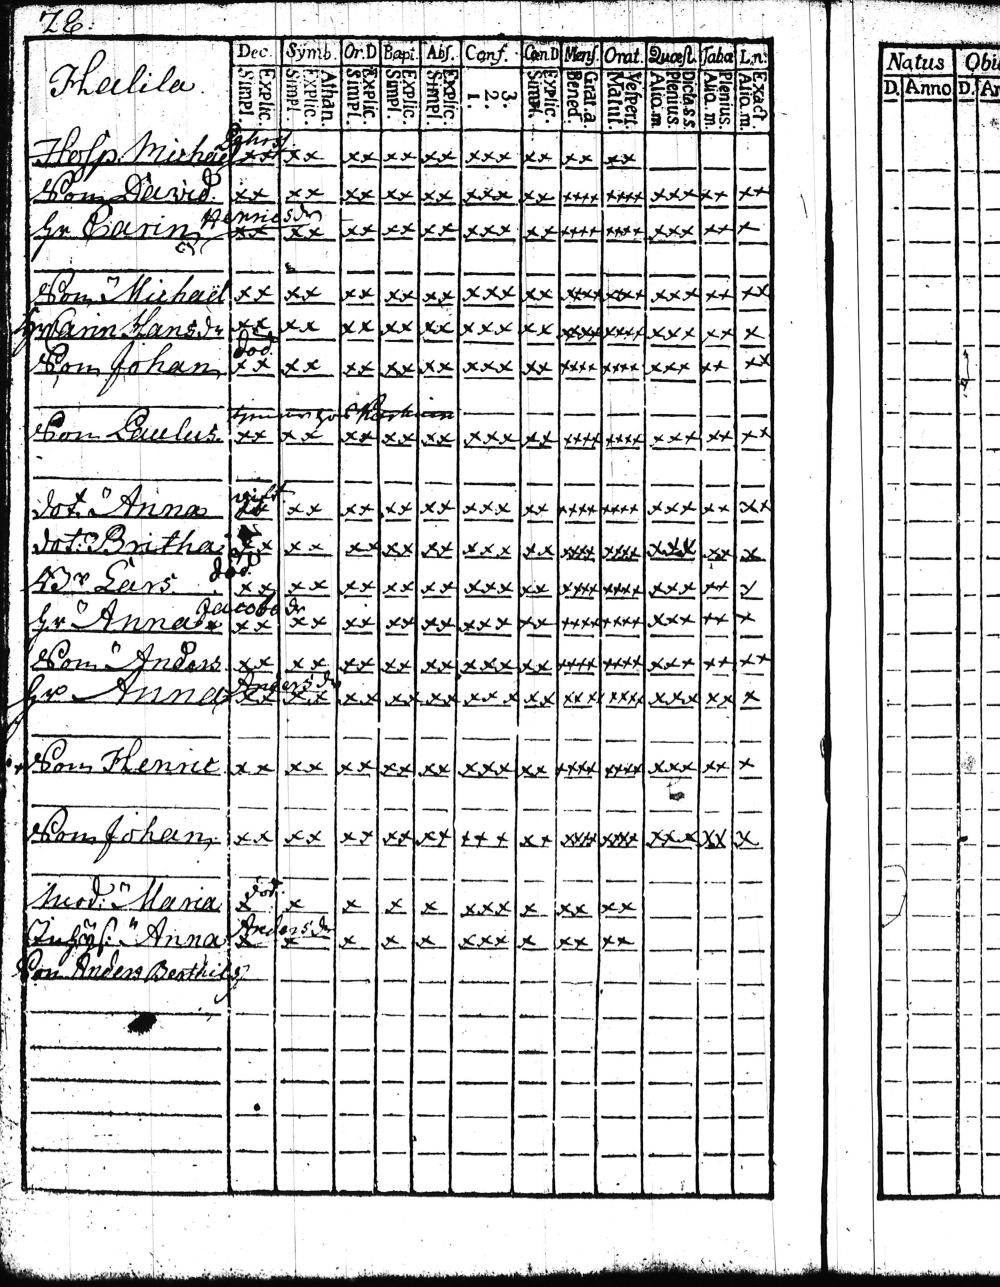 Dec. Symb. Or.D Bapt. Abs. Conf. Cœn.D Mens. Orat. Quæst. Taba L.n:
Explic. Simpl. Athan. Explic. Simpl. Explic. Simpl. Explic. Simpl. Explic. Simpl. 3. 2. 1. Explic. Simpl. Grat.a Bened. Vespert. Matut. Dicta s.s. Plenius. Aliq.m Plenius. Aliq.m Exact Aliq.m.
Natus
D. Anno D.
Hosp. Michael
xx xx xx xx xx xxx xx xx xx
Son David.
xx xx xx xx xx xxx xx xxxx xxxx xxx xx xx
Henricsdr
hr Carin
xx xx xx xx xx xxx xx xxxx xxxx xxx xx x
Son Michaël
xx xx xx xx xx xxx xx xxxx xxxx xxx xx xx
hr Carin Hansdr
xx xx xx xx xx xxx xx xxxx xxxx xxx xx x
död
Son Johan
xx xx xx xx xx xxx xx xxxx xxxx xxx xx xx
Son Paulus.
xx xx xx xx xx xxx xx xxxx xxxx xxx xx xx
gift
dot. Anna
xx xx xx xx xx xxx xx xxxx xxxx xxx xx xx
dot: Britha
xx xx xx xx xx xxx xx xxxx xxxx xxx xx x
död.
Br Lars.
xx xx xx xx xx xxx xx xxxx xxxx xxx xx x
Jacobsdr
hr Anna
xx xx xx xx xx xxx xx xxxx xxxx xxx xx x
Son Anders
xx xx xx xx xx xxx xx xxxx xxxx xxx xx xx
Andersdr
hr Anna
xx xx xx xx xx xxx xx xxxx xxxx xxx xx x
Son Henric
xx xx xx xx xx xxx xx xxxx xxxx xxx xx x
Son Johan
xx xx xx xx xx xxx xx xxxx xxxx xxx xx x
död.
mod: Maria
x x x x x xxx x xx xx
Andersdr
Anna
x x x x x xxx x xx xx
Son Anders Berthils